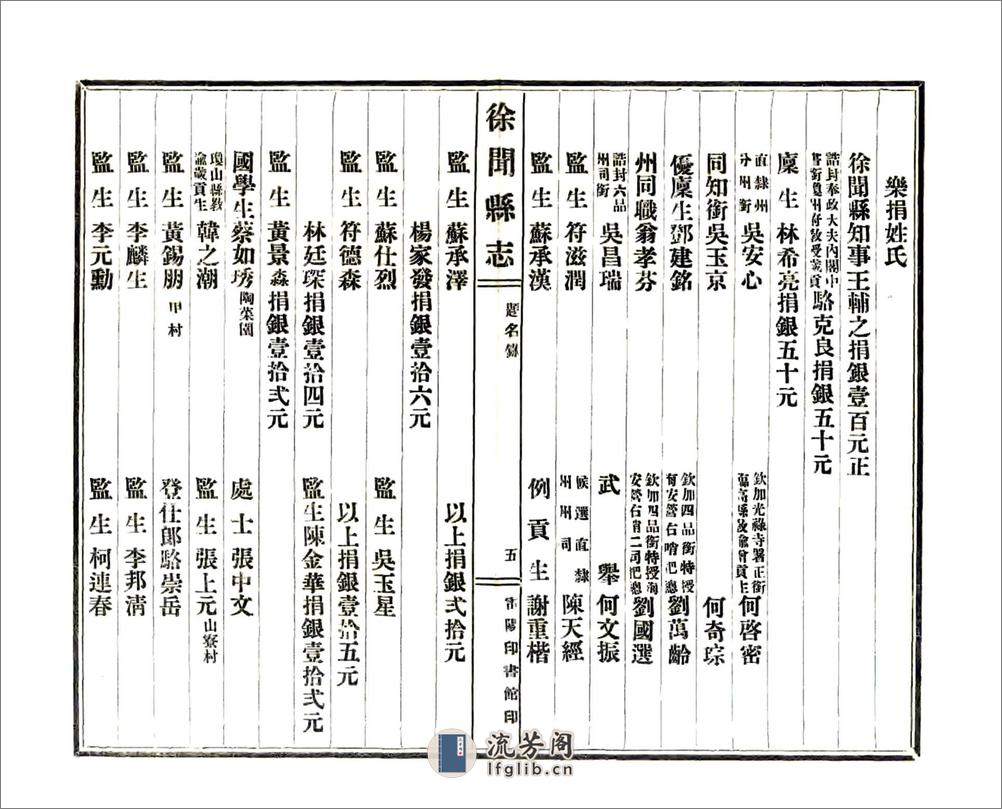 樂捐姓氏
徐聞縣知事王輔之捐銀壹百元正
誥封奉政大夫內閣中
書銜瓊州府教受歲貢
駱克良捐銀五十元
廩生林希亮捐銀五十元
直隸州
分州銜
吳安心
欽加光祿寺署正銜
臨高縣教諭會貢生
何啓密
同知銜吳玉京
何奇琮
優廩生鄧建銘
欽加四品銜特授
安營右哨把總
劉萬齡
州同職翁孝芬
欽加四品銜特授海
安營右哨二司把總
劉國選
誥封六品
州司銜
吳昌瑞
武舉何文振
監生符滋潤
候選直隸
州州司
陳天經
監生蘇承漢
例貢生謝重楷
徐聞縣志
題名錄
五
雷陽印書館印
監生蘇承澤
以上捐銀弍拾元
楊家發捐銀壹拾六元
監生蘇仕烈
監生吳玉星
監生符德森
以上捐銀壹拾五元
林廷琛捐銀壹拾四元
監生陳金華捐銀壹拾弍元
監生黃景森捐銀壹拾弍元
國學生蔡如琇陶菜園
處士張中文
瓊山縣教
諭歲貢生
韓之潮
監生張上元山寮村
監生黃錫朋甲村
登仕郎駱崇岳
監生李麟生
監生李邦清
監生李元勳
監生柯連春
流芳阁
lfglib.cn